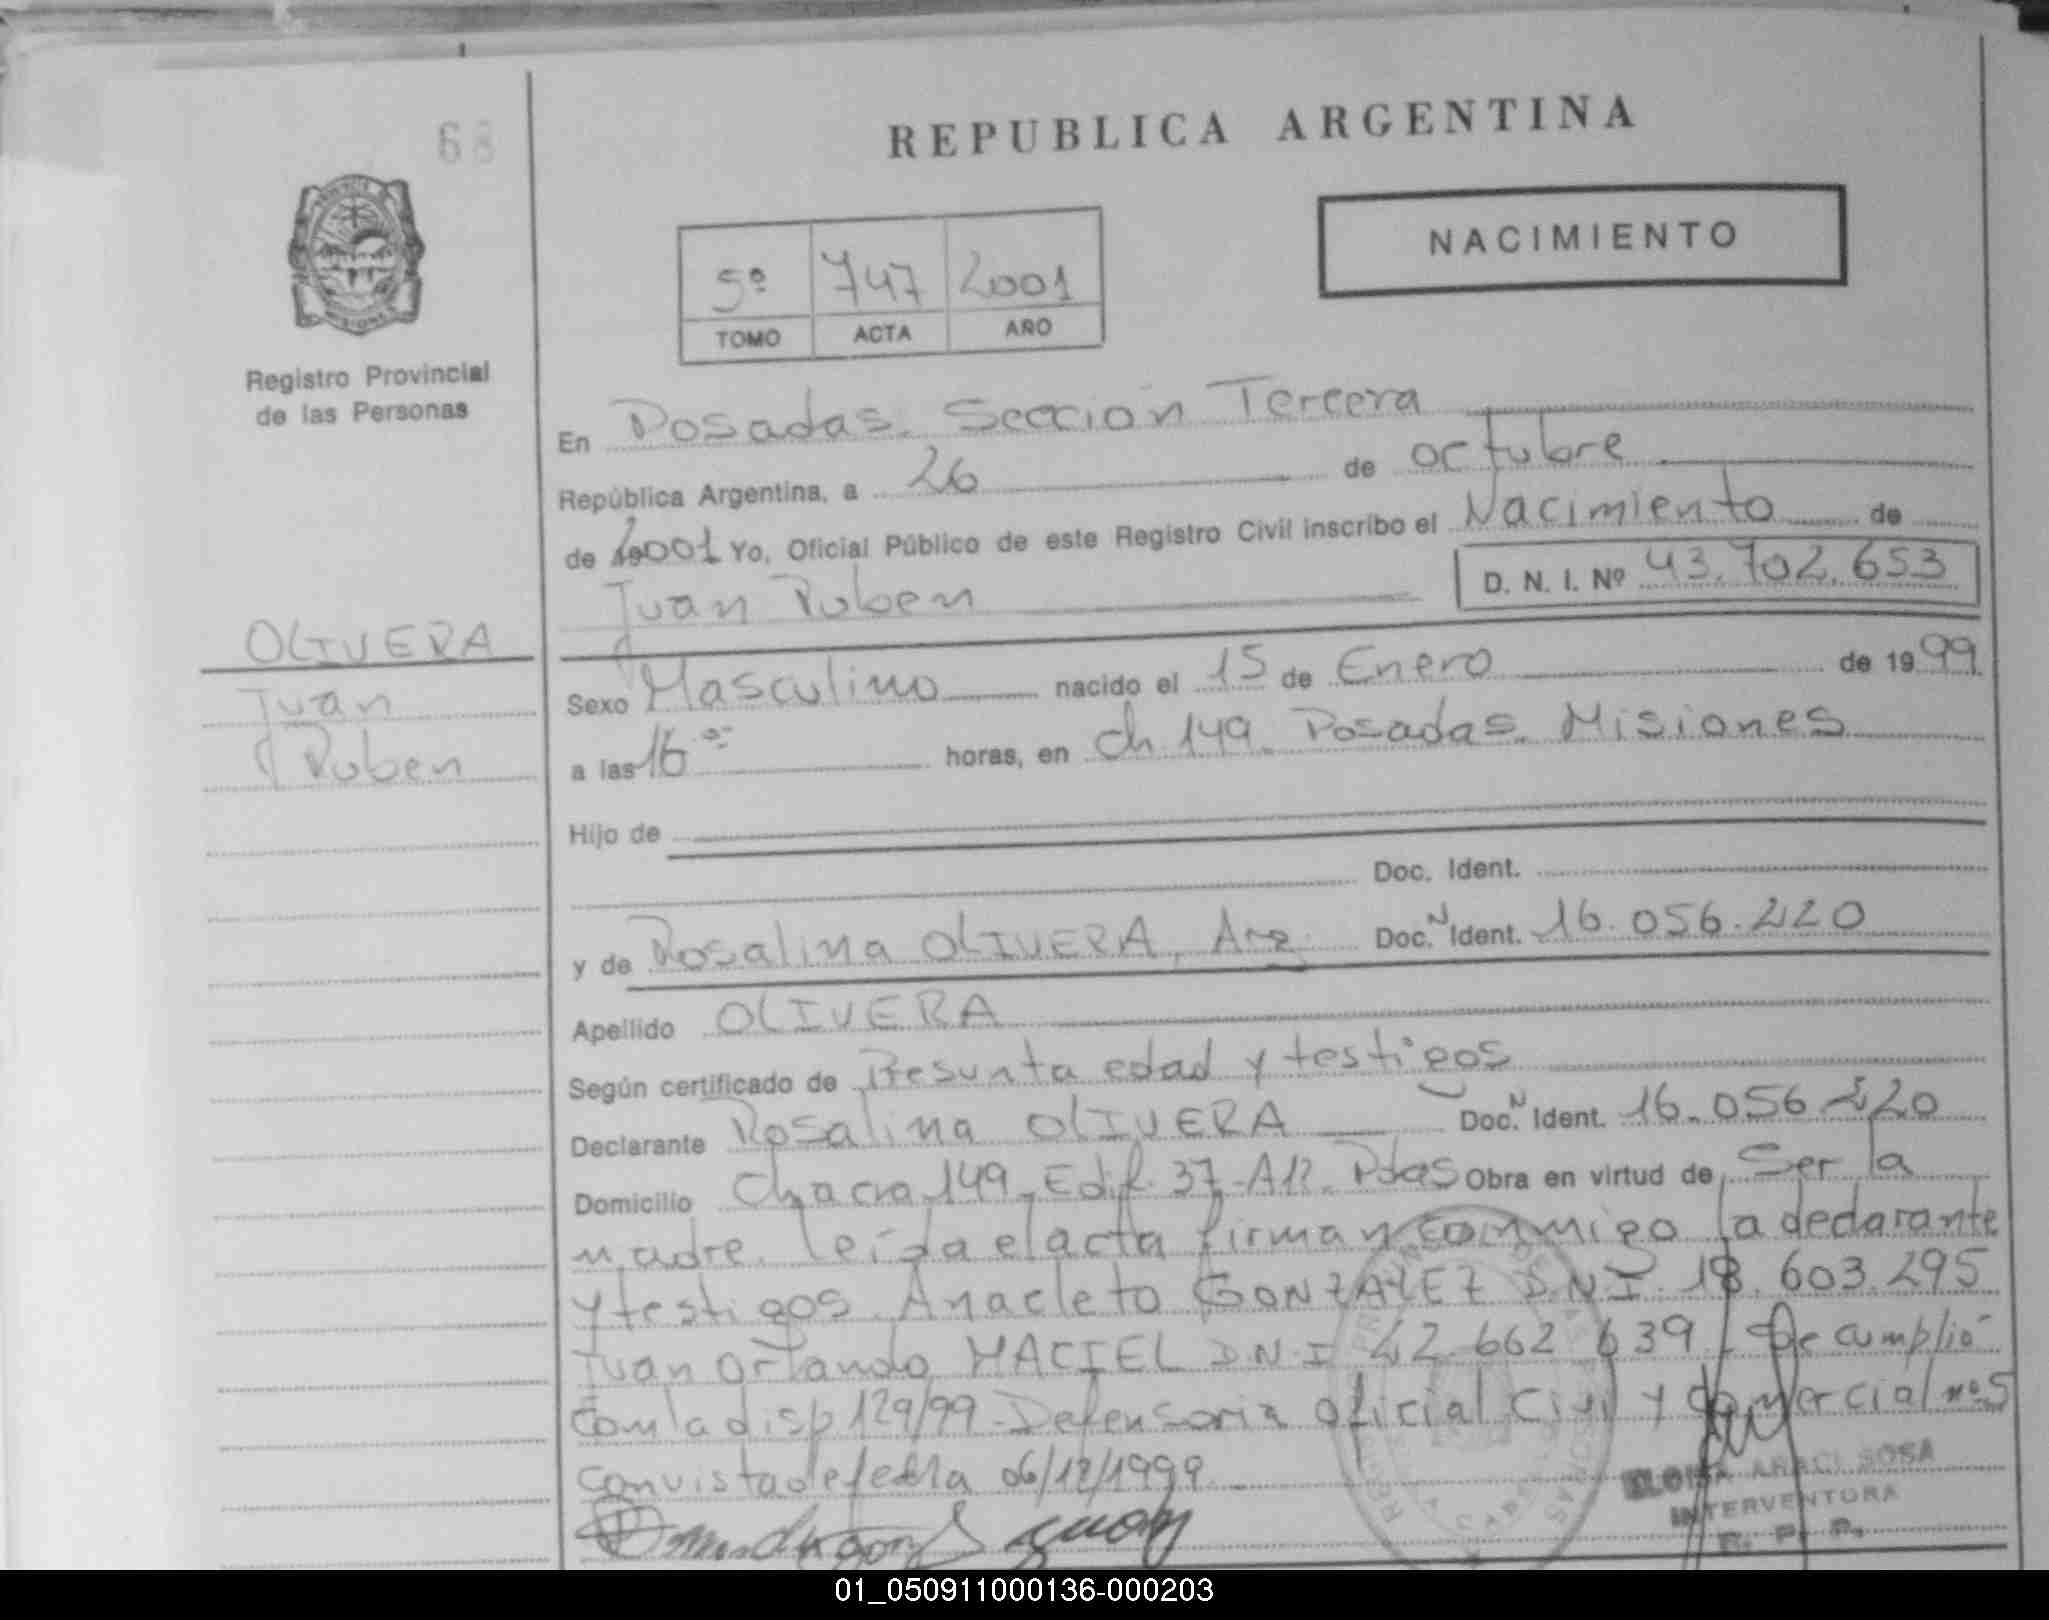 68
REPUBLICA ARGENTINA
NACIMIENTO
5º 747 2001
TOMO ACTA AÑO
Registro Provincial
de las Personas
En Posadas. Sección Tercera
República Argentina, a 26 de octubre
de 2001 Yo, Oficial Público de este Registro Civil inscribo el Nacimiento de
Juan Ruben D. N. I. Nº 43.702.653
OLIVERA
Juan
Ruben
Sexo Masculino nacido el 15 de Enero de 1999
a las 16 horas, en Ch 149. Posadas. Misiones
Hijo de
Doc. Ident.
y de Rosalina OLIVERA, Arg. Doc. N Ident. 16.056.220
Apellido OLIVERA
Según certificado de Presunta edad y testigos
Declarante Rosalina OLIVERA Doc. N Ident. 16.056.220
Domicilio Chacra 149. Edif. 37. Pdas Obra en virtud de Ser la
madre. leída el acta firman conmigo la declarante
y testigos. Anacleto GONZALEZ D.N.I. 18.603.295
Juan Orlando MACIEL D.N.I 42.662.639 Se cumplio
con la disp 129/99 Defensoria oficial Civil y Comercial nº 5
con vista de fecha 06/12/1999
ELOISA ARACI SOSA
INTERVENTORA
R. P. P.
01_050911000136-000203